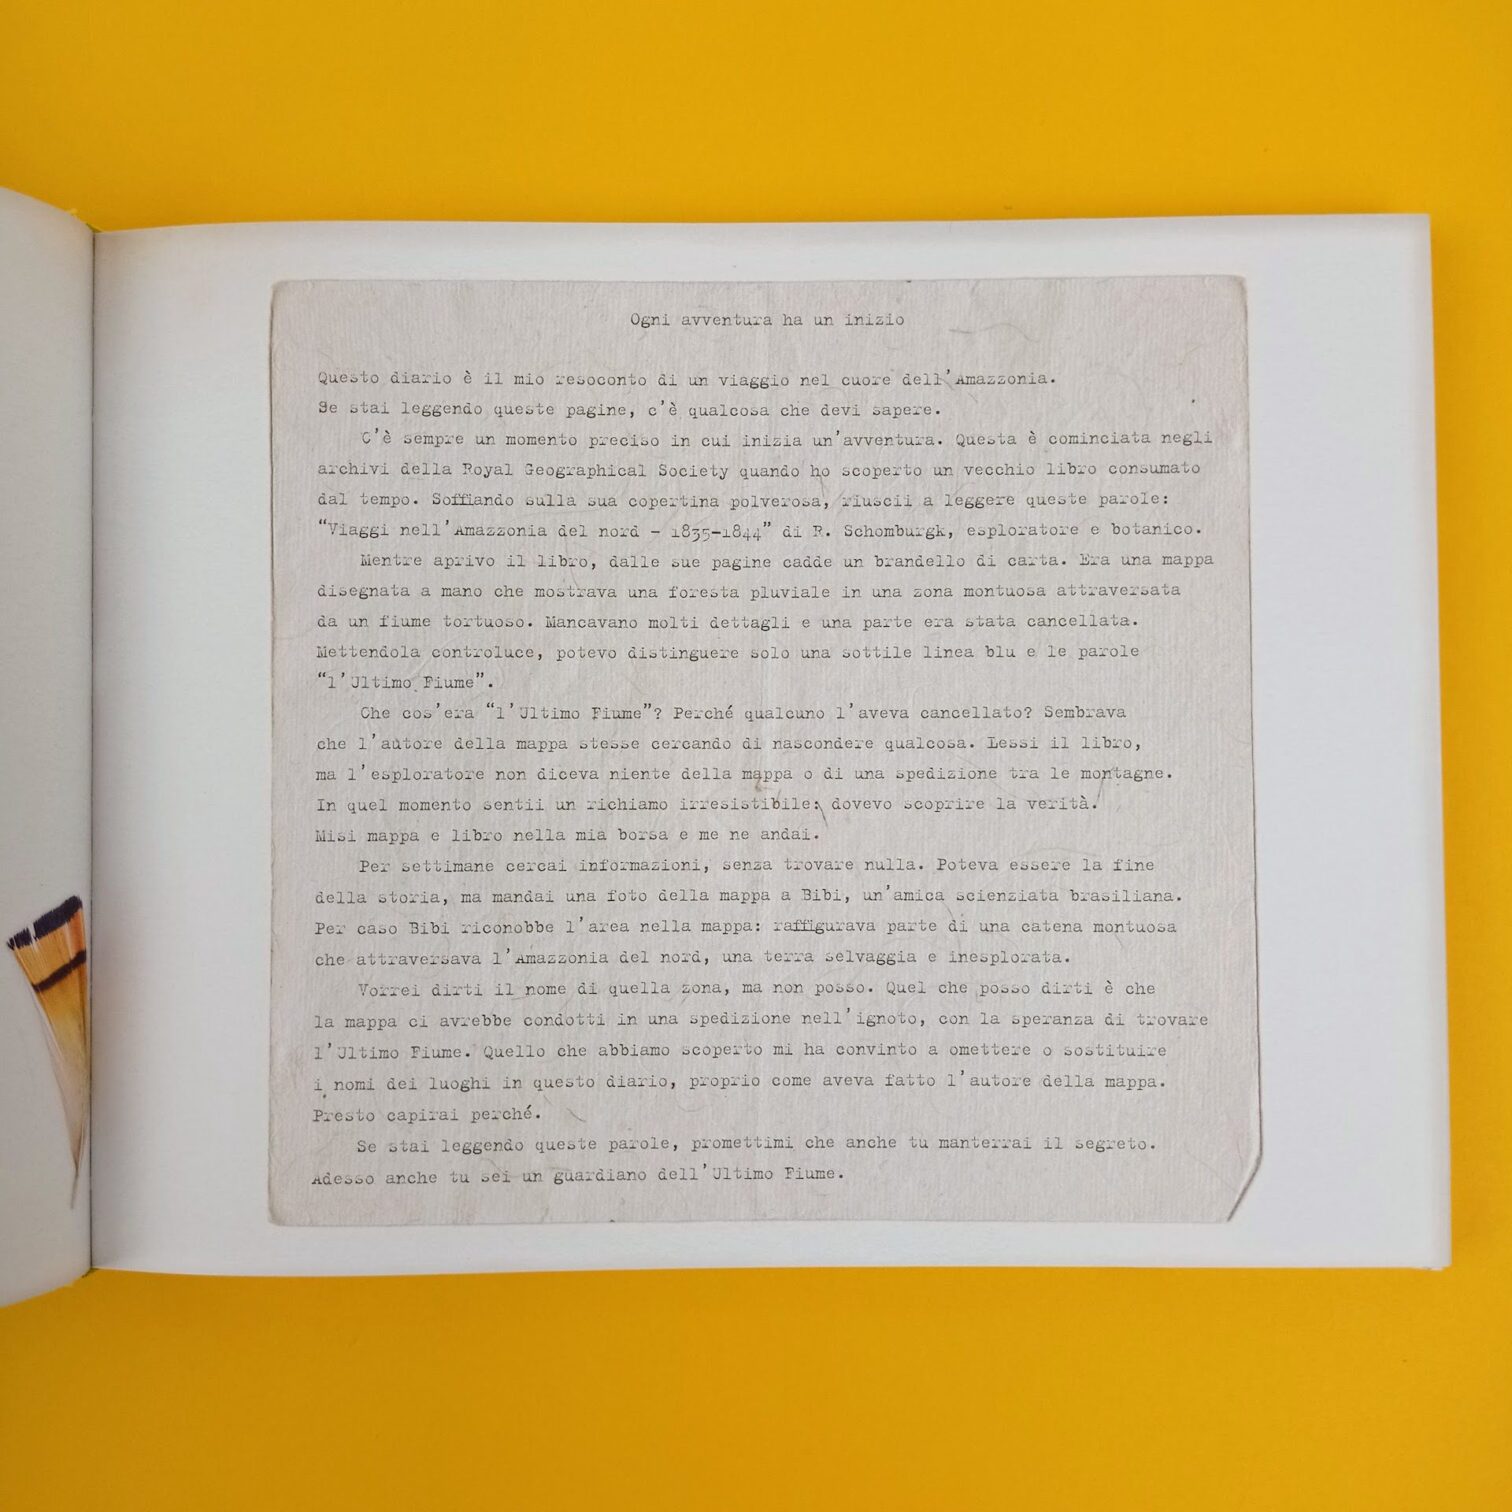 Ogni avventura ha un inizio
Questo diario è il mio resoconto di un viaggio nel cuore dell'Amazzonia.
Se stai leggendo queste pagine, c'è qualcosa che devi sapere.
C'è sempre un momento preciso in cui inizia un'avventura. Questa è cominciata negli
archivi della Royal Geographical Society quando ho scoperto un vecchio libro consumato
dal tempo. Soffiando sulla sua copertina polverosa, riuscii a leggere queste parole:
“Viaggi nell'Amazzonia del nord – 1835–1844” di R. Schomburgk, esploratore e botanico.
Mentre aprivo il libro, dalle sue pagine cadde un brandello di carta. Era una mappa
disegnata a mano che mostrava una foresta pluviale in una zona montuosa attraversata
da un fiume tortuoso. Mancavano molti dettagli e una parte era stata cancellata.
Mettendola controluce, potevo distinguere solo una sottile linea blu e le parole
“l'Ultimo Fiume”.
Che cos'era “l'Ultimo Fiume”? Perché qualcuno l'aveva cancellato? Sembrava
che l'autore della mappa stesse cercando di nascondere qualcosa. Lessi il libro,
ma l'esploratore non diceva niente della mappa o di una spedizione tra le montagne.
In quel momento sentii un richiamo irresistibile: dovevo scoprire la verità.
Misi mappa e libro nella mia borsa e me ne andai.
Per settimane cercai informazioni, senza trovare nulla. Poteva essere la fine
della storia, ma mandai una foto della mappa a Bibi, un'amica scienziata brasiliana.
Per caso Bibi riconobbe l'area nella mappa: raffigurava parte di una catena montuosa
che attraversava l'Amazzonia del nord, una terra selvaggia e inesplorata.
Vorrei dirti il nome di quella zona, ma non posso. Quel che posso dirti è che
la mappa ci avrebbe condotti in una spedizione nell'ignoto, con la speranza di trovare
l'Ultimo Fiume. Quello che abbiamo scoperto mi ha convinto a omettere o sostituire
i nomi dei luoghi in questo diario, proprio come aveva fatto l'autore della mappa.
Presto capirai perché.
Se stai leggendo queste parole, promettimi che anche tu manterrai il segreto.
Adesso anche tu sei un guardiano dell'Ultimo Fiume.